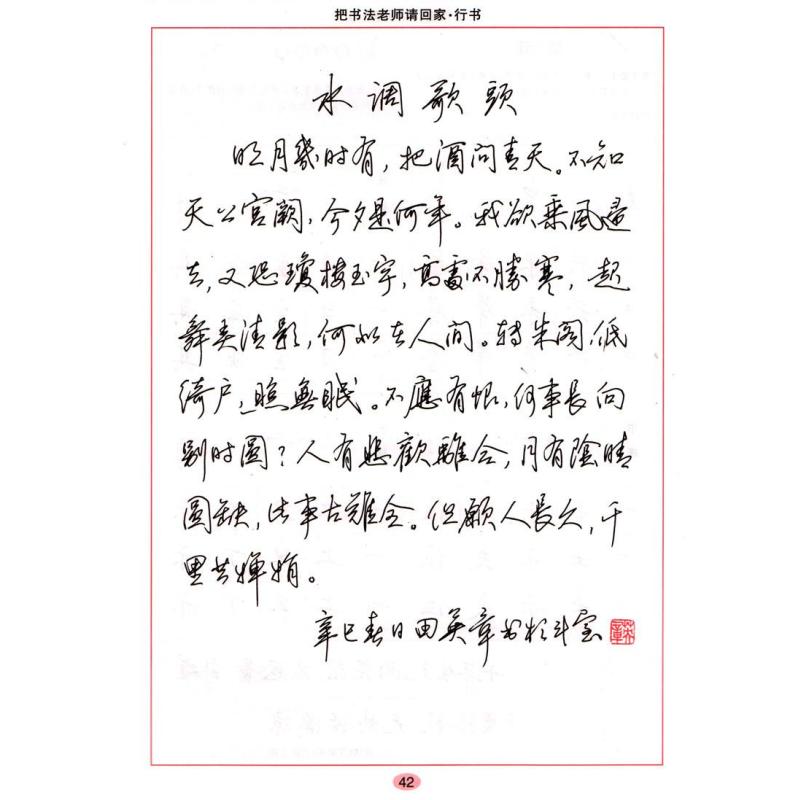 把书法老师请回家·行书
水调歌頭
明月幾时有，把酒问青天。不知
天上宫闕，今夕是何年。我欲乘風歸
去，又恐瓊樓玉宇，高處不勝寒，起
舞弄清影，何似在人间。转朱阁，低
绮户，照無眠。不應有恨，何事長向
别时圆？人有悲歡離合，月有陰晴
圆缺，此事古難全。但願人長久，千
里共婵娟。
辛巳春日田英章书於斗室
英章
42